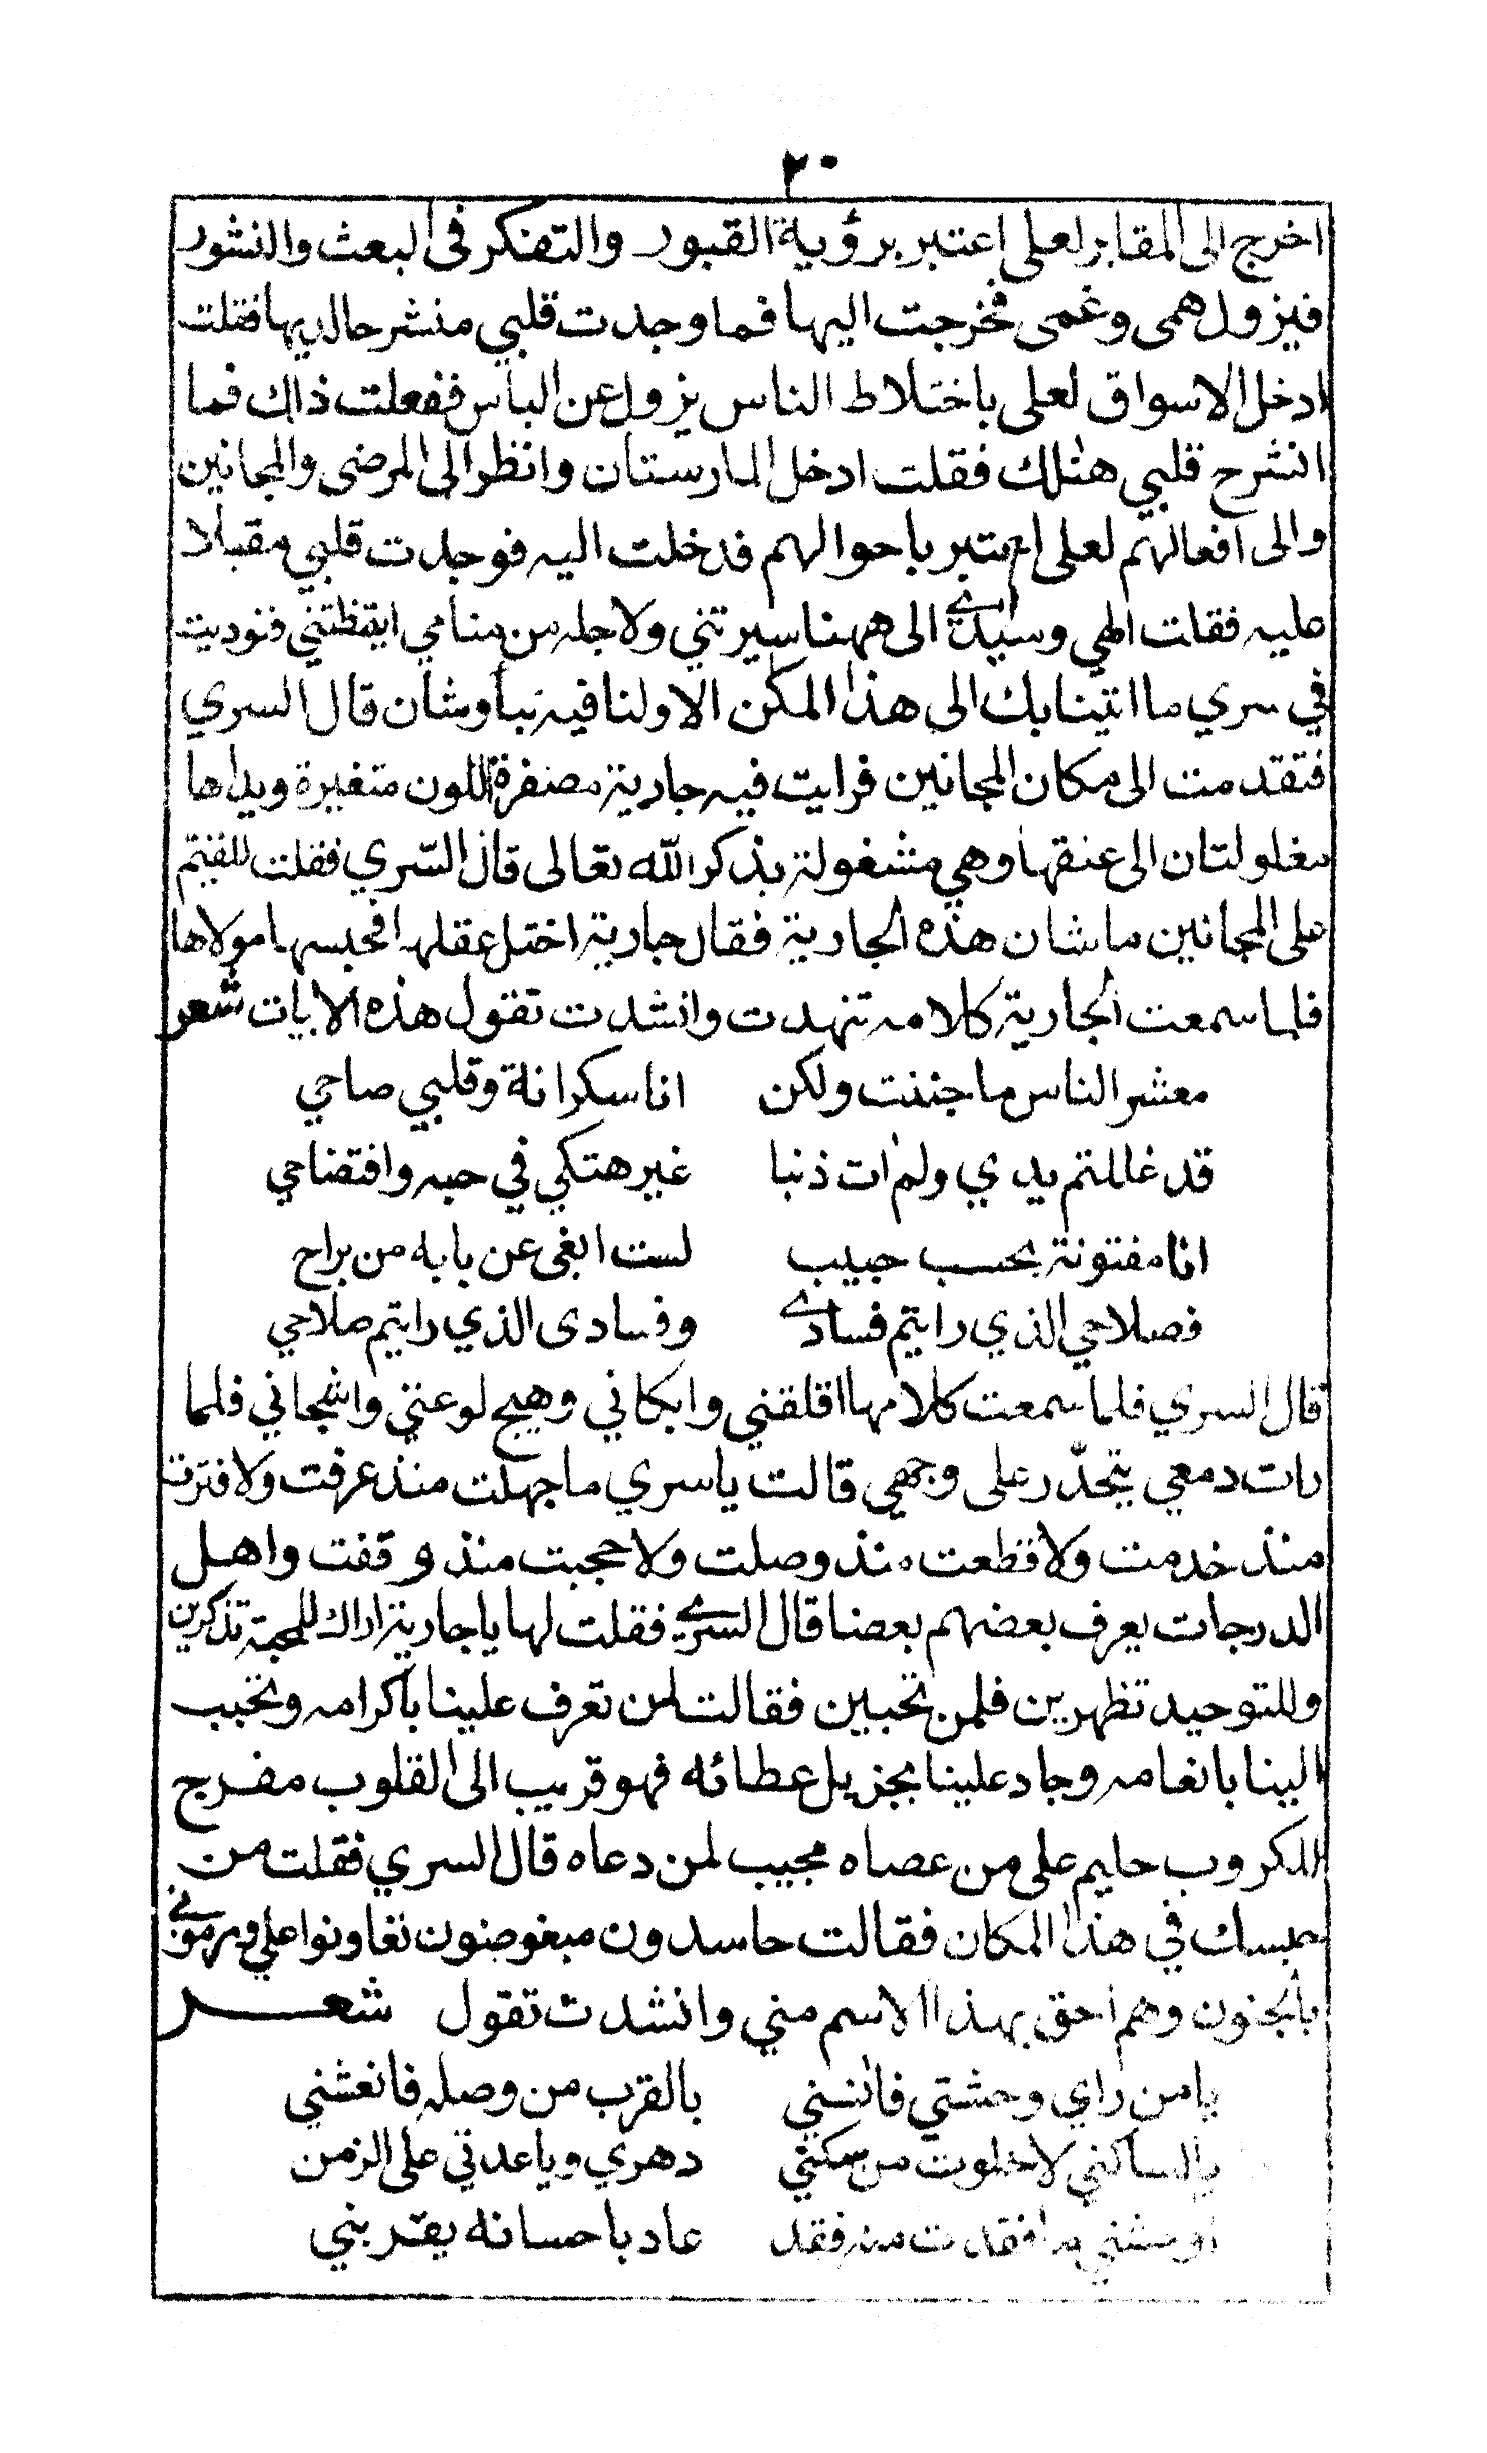 ٢٠
اخرج الى المقابر لعلى اعتبر برؤية القبور والتفكر فى البعث والنشور
فيزول همى وغمى فخرجت اليها فما وجدت قلبي منشرحا لديها فقلت
ادخل الاسواق لعلى باختلاط الناس يزول عن الباس ففعلت ذالك فما
انشرح قلبي هنالك فقلت ادخل المارستان وانظر الى المرضى والمجانين
والى افعالهم لعلى اعتبر باحوالهم فدخلت اليه فوجدت قلبي مقبلا
عليه فقلت الهي وسيدي الى ههنا سيرتني ولاجله من منامي ايقظتني فنوديت
في سري ما اتينا بك الى هذا المكن الا ولنا فيه نبأ وشان قال السري
فتقدمت الى مكان المجانين فرايت فيه جارية مصفرة اللون متغيرة ويداها
مغلولتان الى عنقها وهي مشغولة بذكر الله تعالى قال السّري فقلت للقيّم
على المجانين ما شان هذه الجارية فقال جارية اختل عقلها فحبسها مولاها
فلما سمعت الجارية كلامه تنهدت وانشدت تقول هذه الابيات شعر
معشر الناس ما جننت ولكن انا سكرانة وقلبي صاحي
قد غللتم يدي ولم ات ذنبا غير هتكي في حبه وافتضاحي
انا مفتونة بحب حبيب لست ابغى عن بابه من براح
فصلاحي الذي رايتم فسادي وفسادى الذي رايتم صلاحي
قال السري فلما سمعت كلامها اقلقني وابكاني وهيج لوعتي واشجاني فلما
رات دمعي يتحدّر على وجهي قالت يا سري ما جهلت منذ عرفت ولا فترت
منذ خدمت ولا قطعت منذ وصلت ولا حجبت منذ وقفت واهل
الدرجات يعرف بعضهم بعضا قال السري فقلت لها يا جارية اراك للمحبة تذكرين
وللتوحيد تظهرين فلمن تحبين فقالت لمن تعرف علينا باكرامه وتحبب
الينا بانعامه وجاد علينا بجزيل عطائه فهو قريب الى القلوب مفرج
الكروب حليم على من عصاه مجيب لمن دعاه قال السري فقلت من
حبسك في هذا المكان فقالت حاسدون مبغوضون تعاونوا علي ورموني
بالجنون وهم احق بهذا الاسم مني وانشدت تقول شعر
يا من راي وحشتي فانسني بالقرب من وصله فانعشني
يا ساكني لا خلوت من سكني دهري ويا عدتي على الزمن
اوحشني ما فقدت منه فقد عاد باحسانه يقرّبني